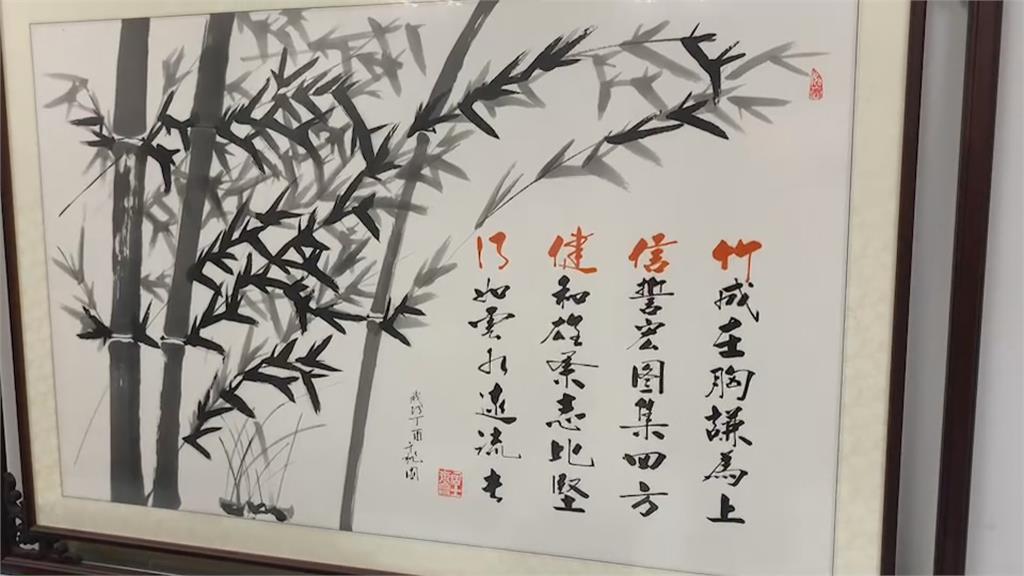 竹成在胸謙為上
信誓宏图集四方
健和雄業志比堅
行如雲水遠流长
歲次丁酉